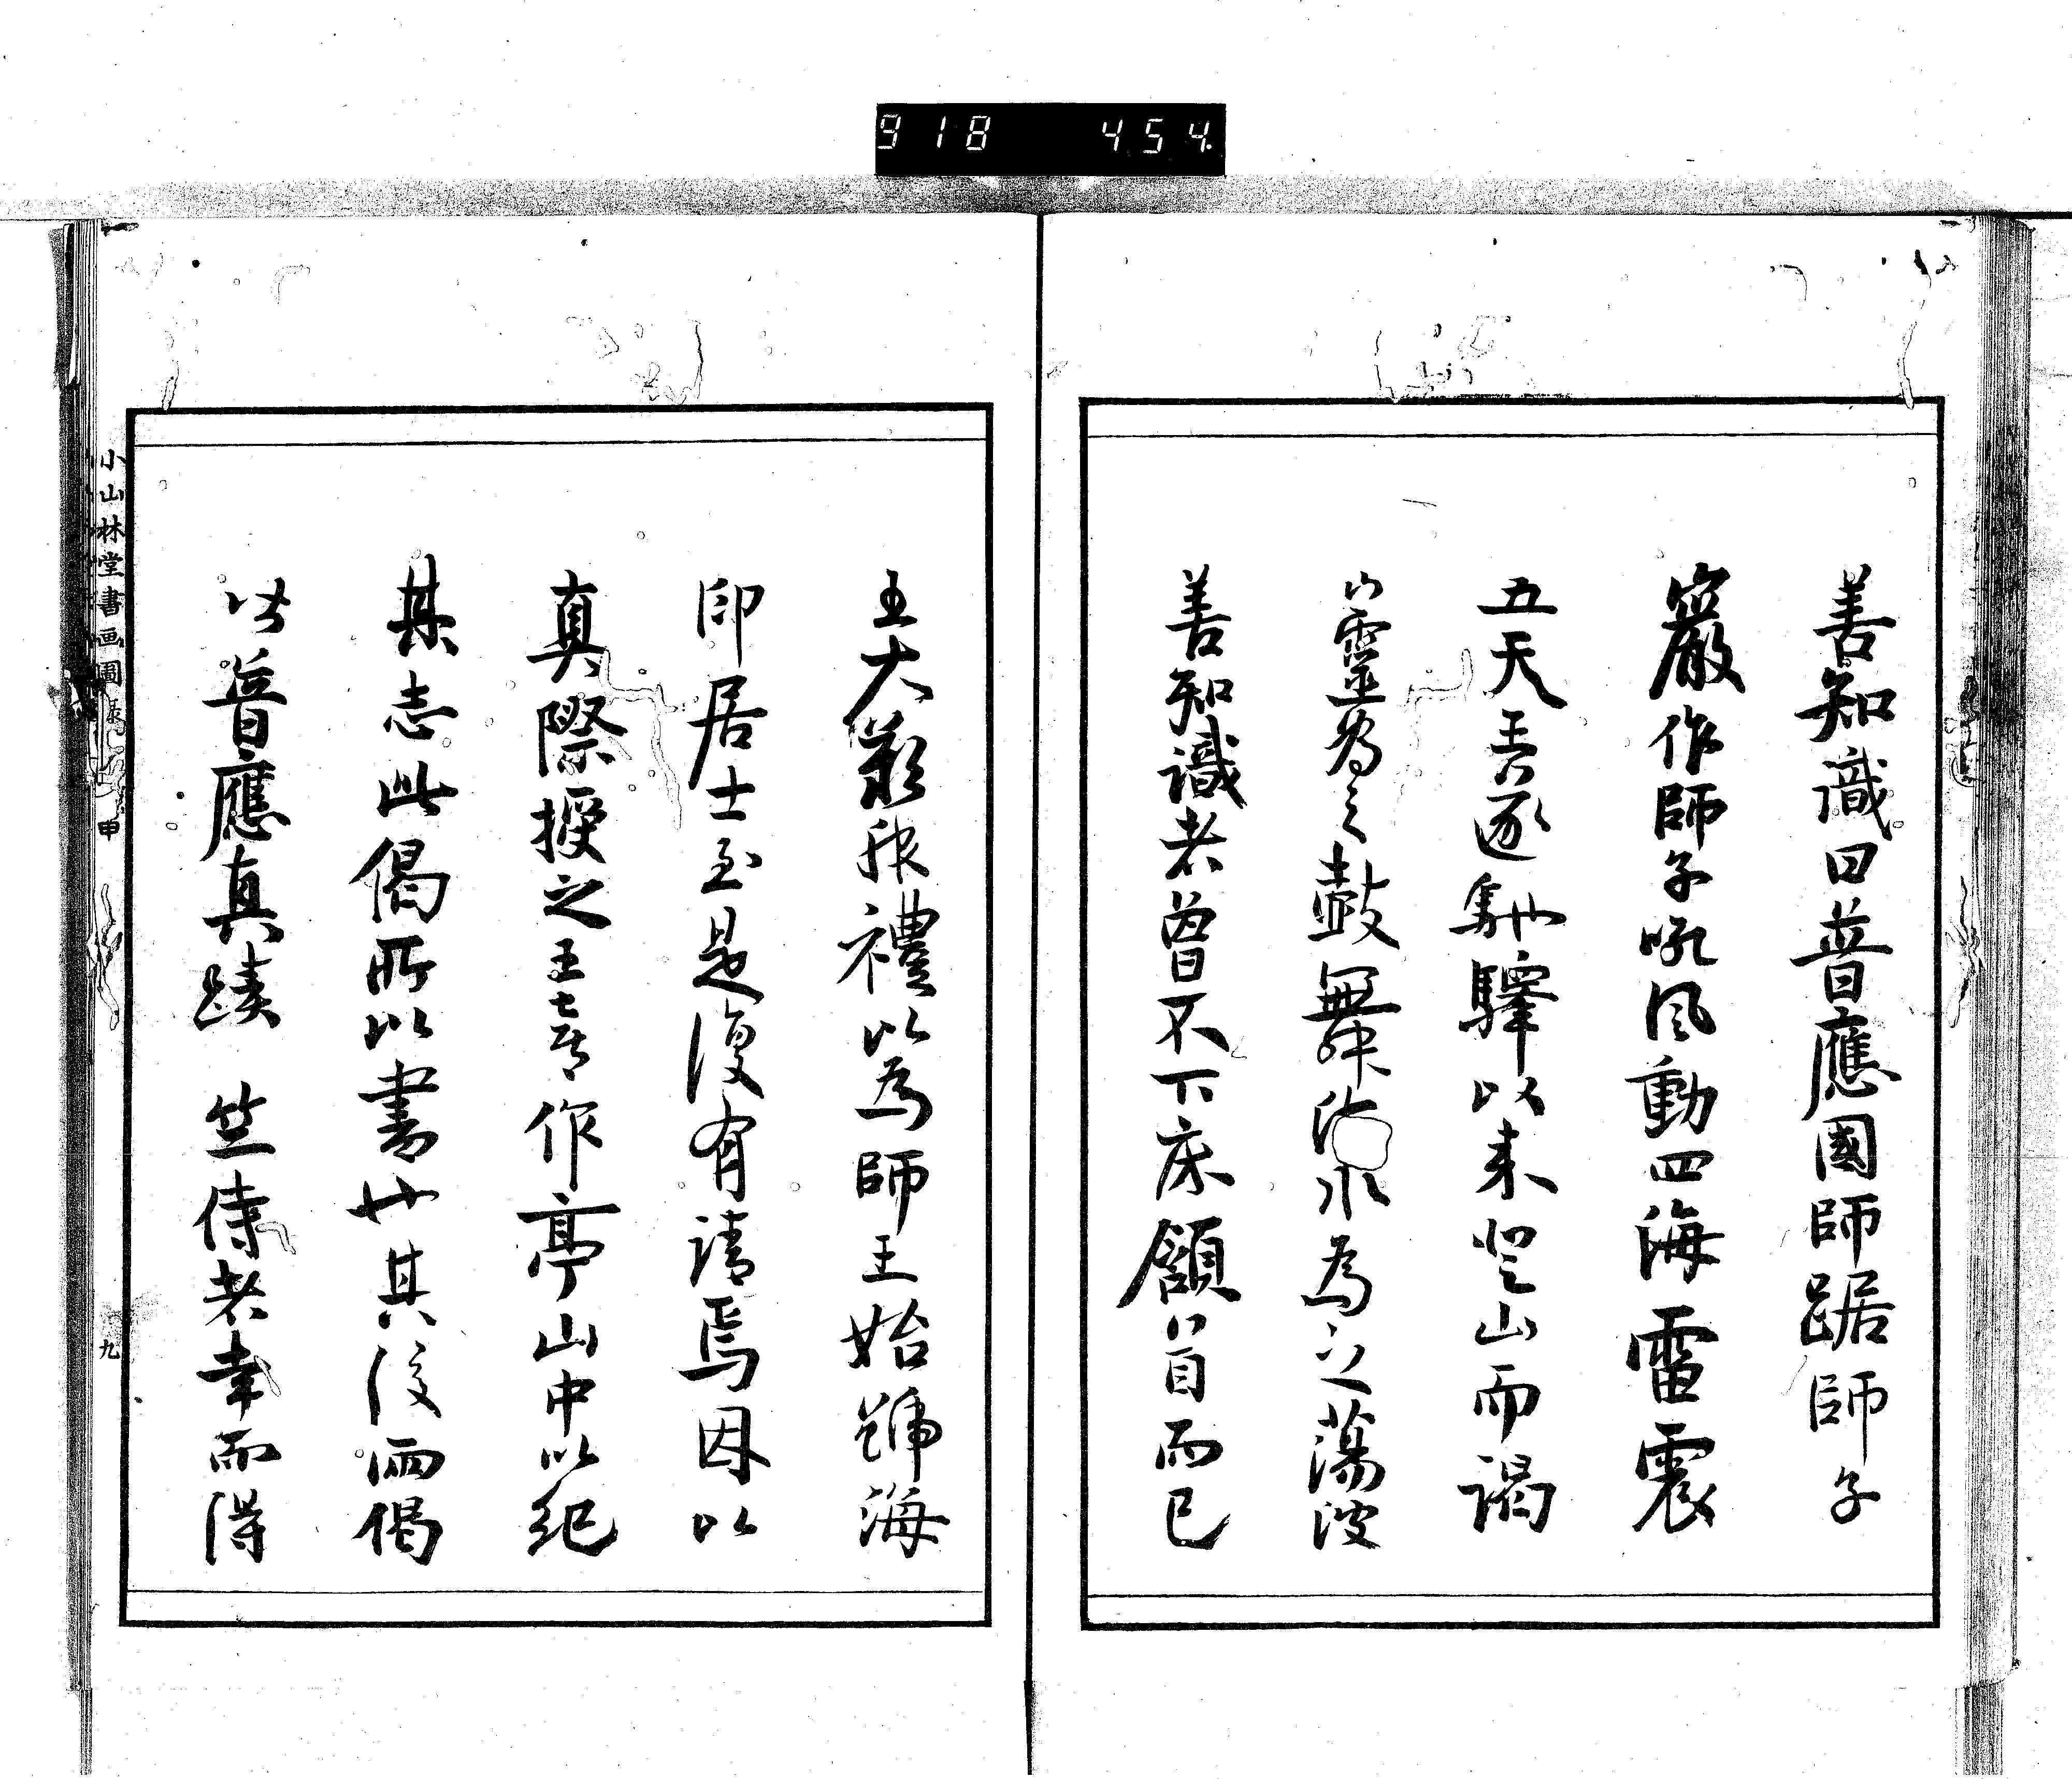 918 454
善知識曰普應國師踞師子
巖作師子吼風動四海雷震
五天王遂馳驛以来登山而謁
山靈為之鼓舞海水為之蕩波
善知識者曾不下床頷首而已
王大敬服禮以為師王始號海
印居士至是復有請焉因以
真際授之王喜作亭山中以紀
其志此偈所以書也其後两偈
皆普應真蹟 竺侍者幸而得
小山林堂書画圖 申 九